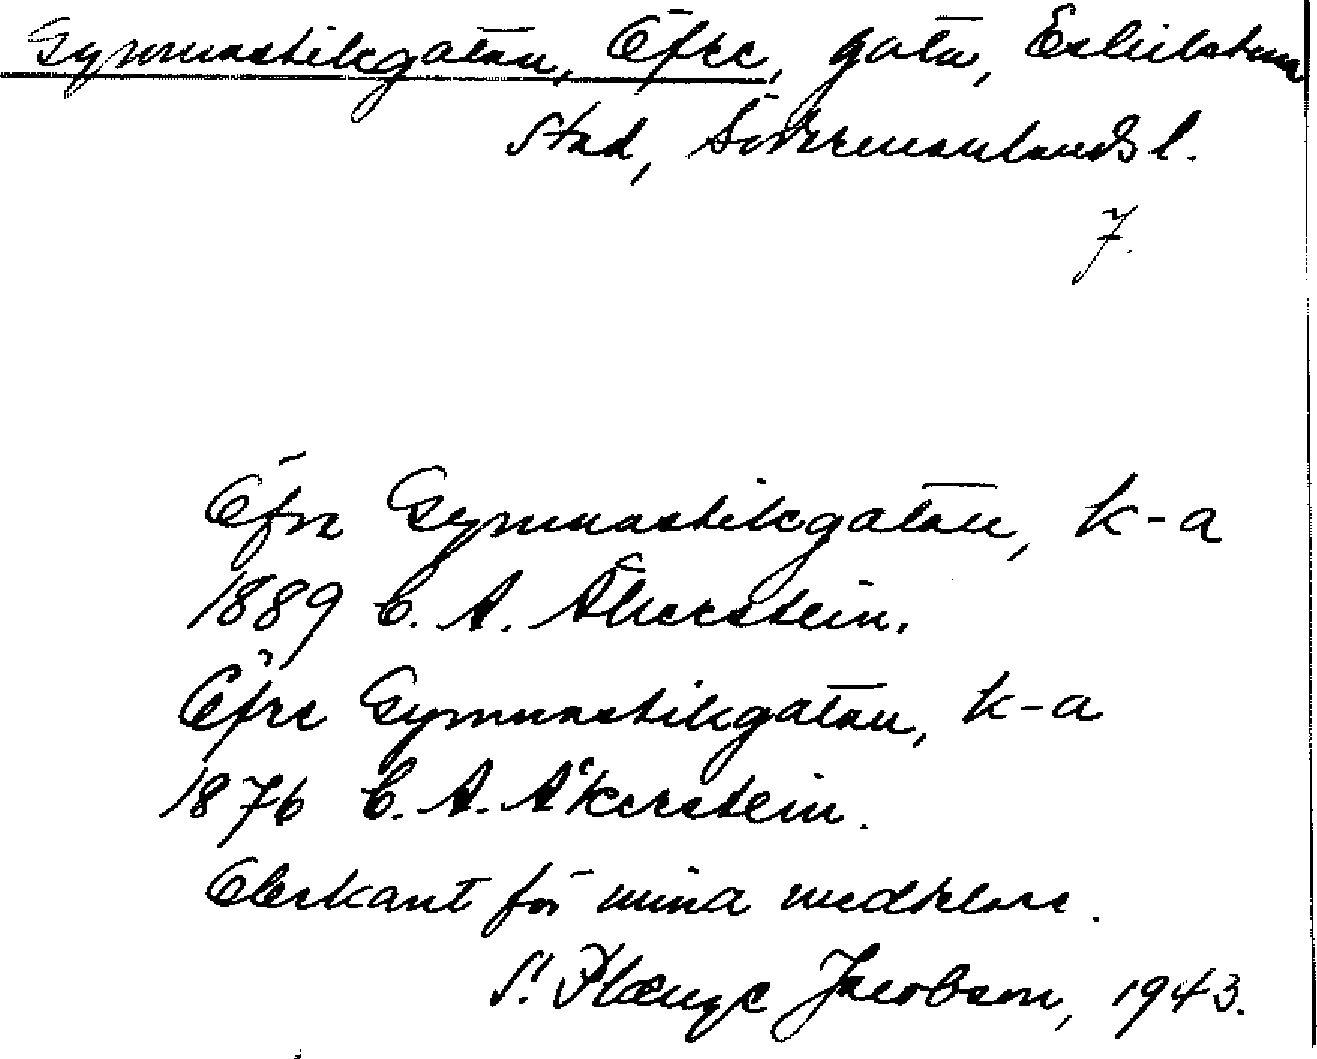 Gymnastikgatan, Öfre, gata, Eskilstuna
stad, Södermanlands l.
7.
Öfre Gymnastikgatan, k-a
1889 C. A. Åkerstein.
Öfre Gymnastikgatan, k-a
1876 C. A. Åkerstein.
Obekant för mina meddelare.
S. Plænge Jacobson, 1943.